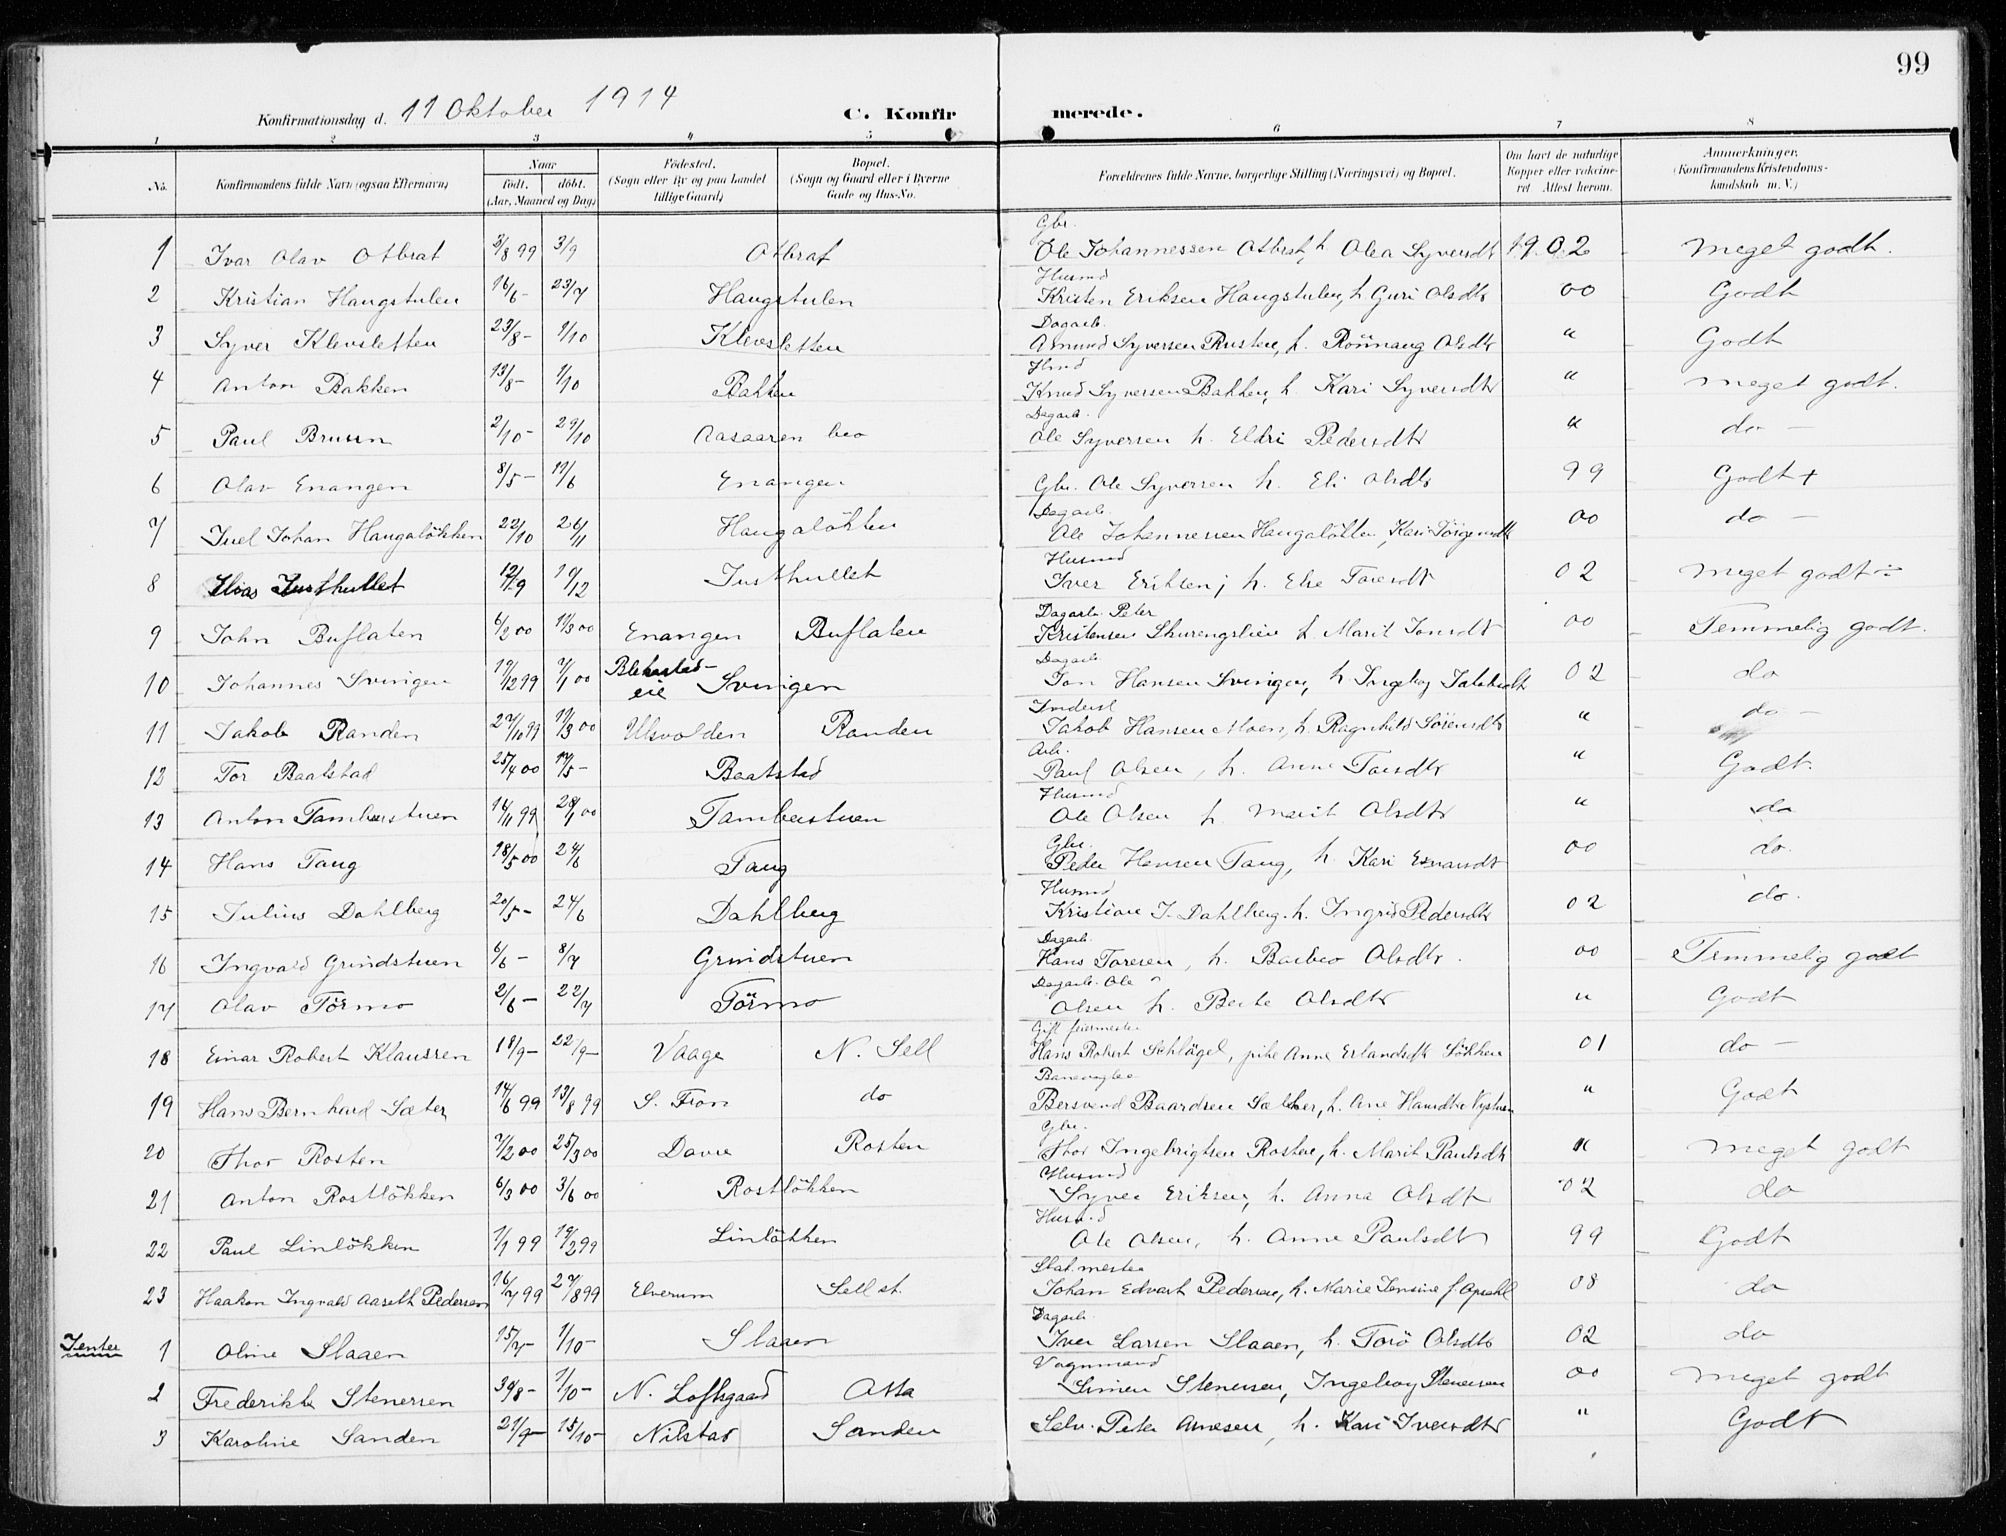 99
Konfirmationsdag d. 11 Oktober 1914 C. Konfirmerede.
1 2 3 4 5 6 7 8
No. Konfirmandens fulde Navn (ogsaa Efternavn) Naar født. døbt. (Aar, Maaned og Dag) Fødested. (Sogn eller By og paa Landet tillige Gaard) Bopæl. (Sogn og Gaard eller i Byerne Gade og Hus-No. Forældrenes fulde Navne, borgerlige Stilling (Næringsvei) og Bopæl. Om havt de naturlige Kopper eller vaccineret. Attest herom. Anmærkninger. (Konfirmandens Kristendomskundskab m. V.)
1 Ivar Olav Otbrat 3/8 99 3/9 Otbrat Gbr. Ole Johannessen Otbrat, h Olea Syversdt 1902 Meget godt.
2 Kristian Haugstulen 16/6 - 23/7 Haugstulen Husmd Kristen Eriksen Haugstulen, h Guri Olsdtr 00 Godt
3 Syver Klevsletten 23/8 - 1/10 Klevsletten Dagarb. Amund Syversen Rusten, h. Rönnaug Olsdtr " Godt
4 Anton Bakken 13/8 - 1/10 Bakken Hmd Knud Syversen Bakken, h. Kari Syversdtr " Meget godt.
5 Paul Bruun 2/10 - 29/10 Aasaaren Dagarb. Ole Syversen h. Eldri Pedersdtr " do -
6 Olav Enangen 8/5 - 11/6 Enangen Gbr. Ole Syversen h. Eli Olsdtr 99 Godt +
7 Juel Johan Haugaløkken 22/10 26/11 Haugaløkken Dagarb. Ole Johannessen Haugaløkken, Kari Jörgensdt 00 do -
8 Justhullet 12/9 17/12 Justhullet Husmd Iver Eriksen, h. Else Toresdt 02 Meget godt ÷
9 John Buflaten 6/2 00 11/3 00 Enangen Buflaten Dagarb. Peter Kristensen h. Marit Jonsdt 00 Temmelig godt.
10 Johannes Svingen 17/12 99 7/1 00 Blekastad-eie Svingen Dagarb Jon Hansen Svingen, h. Ingeborg Jakobsdt 02 do
11 Jakob Randen 27/10 99 11/3 00 Ulsvolden Randen Inderst Jakob Hansen Moen, h. Ragnhild Sörensdtr " do -
12 Tor Baatstad 25/4 00 17/5 - Baatstad Arb. Paul Olsen, h. Anne Toresdtr " Godt.
13 Anton Tamburstuen 16/11 99 28/1 00 Tamburstuen Husmd Ole Olsen h. Marit Olsdtr " do
14 Hans Taug 18/5 00 24/6 Taug Gbr. Peder Hansen Taug, h. Kari 00 do.
15 Julius Dahlberg 20/5 - 24/6 Dahlberg Husmd Kristian J. Dahlberg h. Ingrid Pedersdtr 02 do.
16 Ingvald Grindstuen 6/6 - 8/7 Grindstuen Dagarb. Hans Toresen, h. Barbro Olsdtr. 00 Temmelig godt
17 Olav Törmo 2/6 - 22/7 Törmo Dagarb. Ole Olsen h. Berte Olsdtr " Godt
18 Einar Robert Klaussen 18/9 - 22/9 - Vaage N. Sell Gift feiermester Hans Robert Schlägel, pike Anne Erlandsdt Lökken 01 do -
19 Hans Bernhard Sæter 14/6 99 13/8 99 S. Fron do Banevogter Bersvend Baardsen Sæther, h. Ane Hansdtr Nystuen " Godt
20 Thor Rosten 7/2 00 25/3 00 Dovre Rosten Gbr. Thor Ingebrigtsen Rosten, h. Marit Paulsdtr " Meget godt
21 Anton Rostløkken 6/3 00 3/6 00 Rostløkken Husmd Syver Eriksen, h. Anna Olsdtr 02 do
22 Paul Linløkken 1/1 99 19/2 99 Linløkken Husmd Ole Olsen, h. Anne Paulsdt 99 Godt
23 Haakon Ingvald Aaseth Pedersen 16/7 99 27/8 99 Elverum Sell st. Stat.mester Johan Edvart Pedersen, h. Marie Jensine f. Opsahl 08 do
Jenter 1 Oline Slaaen 15/7 - 1/10 - Slaaen Dagarb. Iver Larsen Slaaen, h. Torö Olsdtr 02 do
2 Frederikke Stenersen 30/8 - 1/10 - N. Loftsgaard Otta Vognmand Simen Stenersen, Ingeborg Stenersen 00 Meget godt
3 Karoline Sanden 21/9 - 15/10 - Nilstad Sanden Selv. Peter Arnesen, h. Kari Iversdtr " Godt